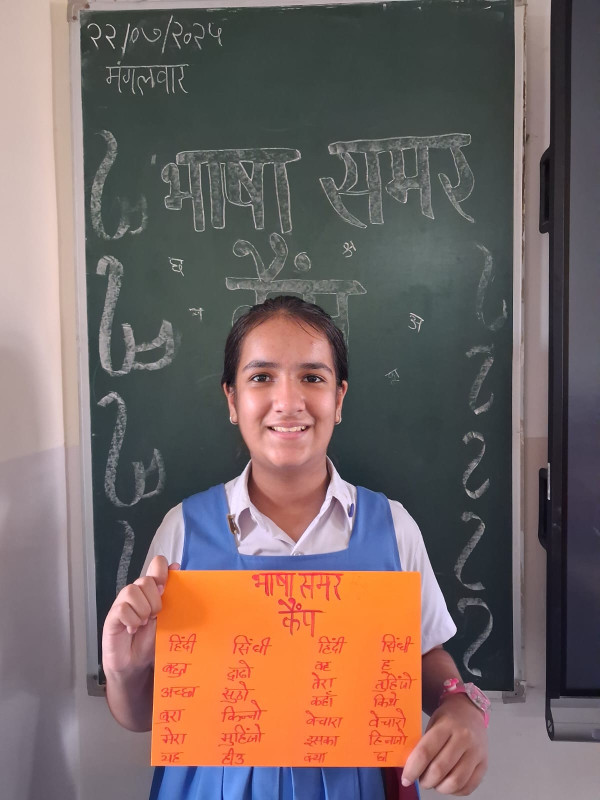 २२/०७/२०२५
मंगलवार
भाषा समर
कैंप
भाषा समर
कैंप
हिंदी सिंधी हिंदी सिंधी
बहुत ढाढो वह हू
अच्छा सुठो तेरा तुहिंजो
बुरा किन्नो कहाँ किथे
मेरा मुहिंजो बेचारा वेचारो
यह हीउ इसका हिनजो
क्या छा